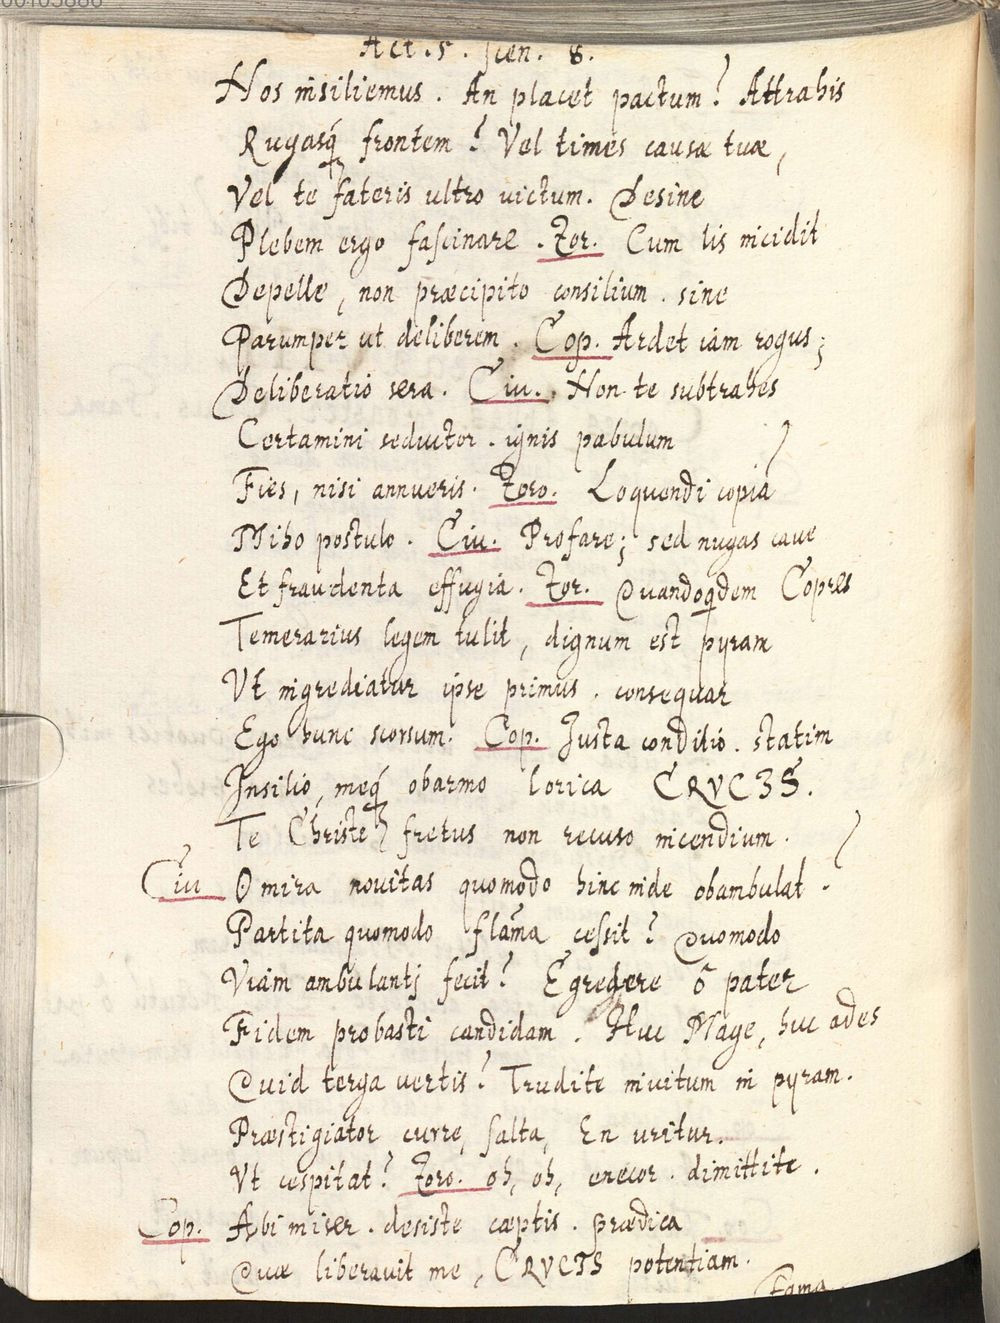 00105886
Act. 5. Scen. 8.
Nos insiliemus. An placet pactum? Attrahis
Rugasq́ frontem? Vel times causæ tuæ,
Vel te fateris ultro victum. Desine
Plebem ergo fascinare. Zor. Cum lis incidit
Depelle, non præcipito consilium. sine
Parumper ut deliberem. Cop. Ardet iam rogus;
Deliberatio sera. Ciu. Non te subtrahes
Certamini seductor. ignis pabulum
Fies, nisi annueris. Zoro. Loquendi copia
Miho postulo. Ciu. Profare; sed nugas caue
Et fraudenta effugia. Zor. Quandoq́dem Copres
Temerarius legem tulit, dignum est pyram
Vt ingrediatur ipse primus. consequar
Ego hunc seorsum. Cop. Justa conditio. statim
Insilio, meq́ obarmo lorica CRVCIS.
Te Christe fretus non recuso incendium.
Ciu O mira nouitas quomodo hinc inde obambulat.
Partita quomodo flam̃a cessit? Quomodo
Viam ambulantj fecit? Egredere ô pater
Fidem probasti candidam. Huc Mage, huc ades
Quid terga vertis? Trudite inuitum in pyram.
Præstigiator curre, salta, En uritur.
Vt cespitat? Zoro. oh, oh, enecor. dimittite.
Cop. Abi miser. desiste cæptis. prædica
Quæ liberauit me, CRVCIS potentiam.
Fama